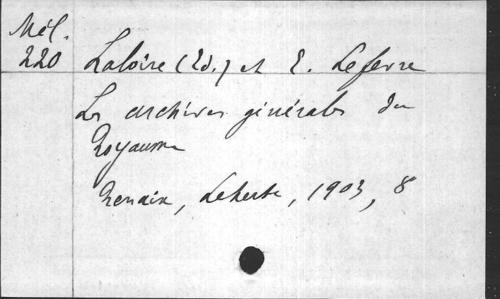 Mél.
220 Laloire (Ed.) et E. Lefevre
Les archives générales du
Royaume
Renaix, Leherte, 1903, 8